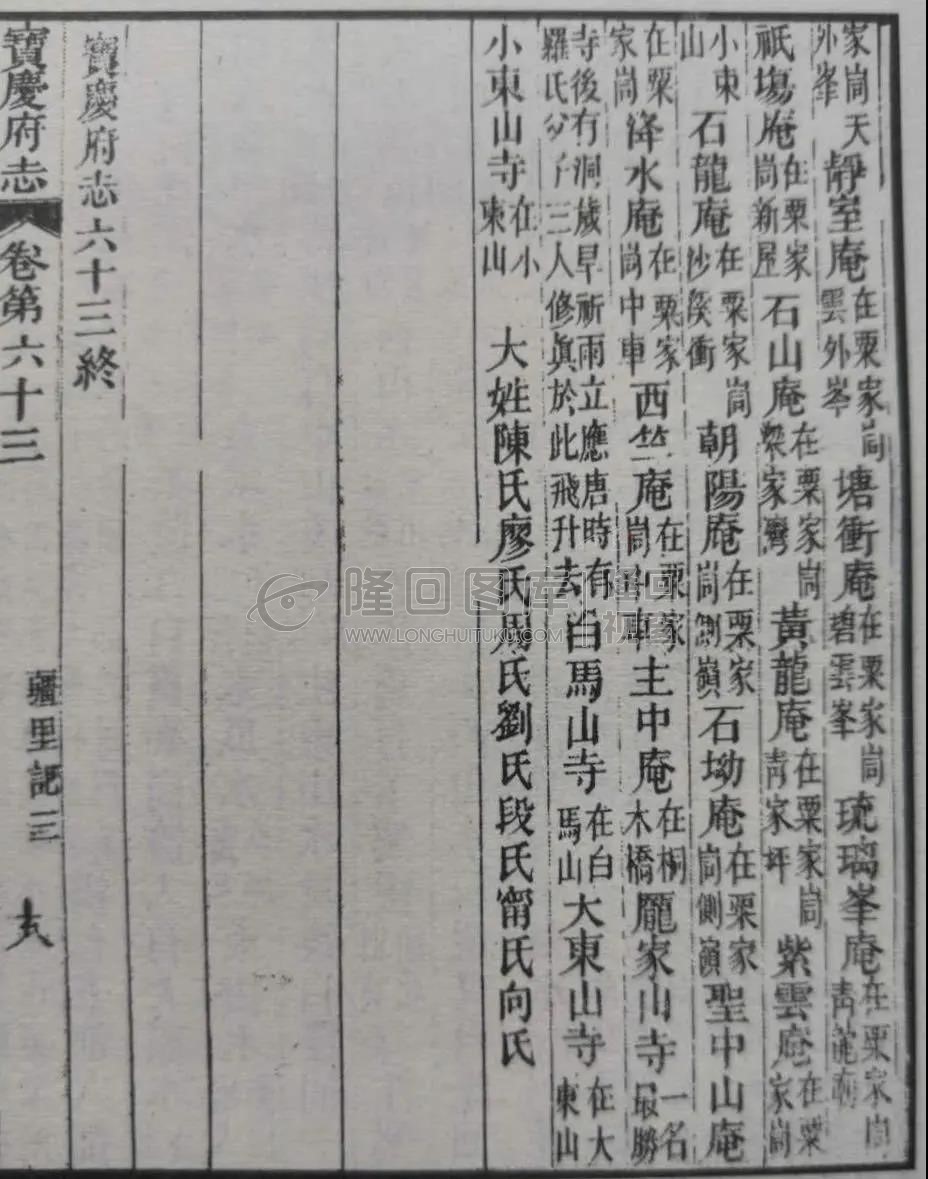 家峝天外峯靜室庵在粟家峝雲外峯塘衝庵在粟家峝碧雲峯琉璃峯庵在粟家峝靑龍
祇塲庵在粟家峝新屋石山庵在粟家峝梁家灣黃龍庵在粟家峝靑家坪紫雲庵在粟家峝
小東山石龍庵在粟家峝沙溪衝朝陽庵在粟家峝側嶺石坳庵在粟家峝側嶺聖中山庵
在粟家峝降水庵在粟家峝中車西竺庵在粟家峝中車主中庵在桐木橋龎家山寺一名最勝
寺後有洞歲旱祈雨立應唐時有羅氏父子三人修眞於此飛升去白馬山寺在白馬山大東山寺在大東山
小東山寺在小東山 大姓陳氏廖氏周氏劉氏段氏甯氏向氏
寶慶府志六十三終
寶慶府志 卷第六十三 疆里記三
隆回图库
WWW.LONGHUITUKU.COM